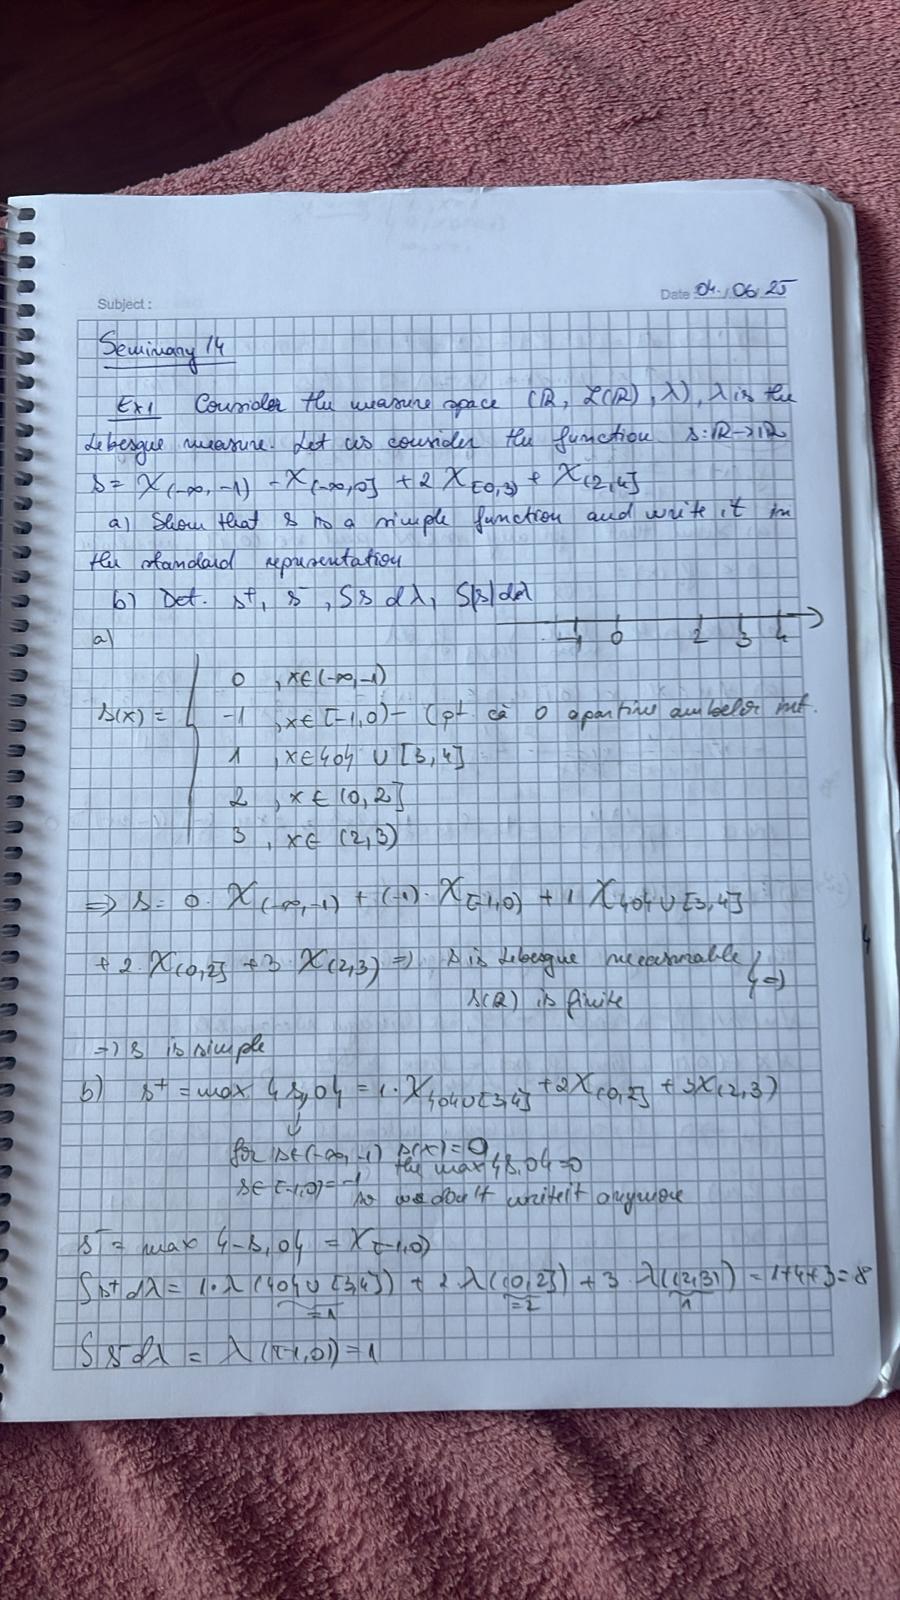 Subject :
Date 04. 06 25
Seminary 14
Ex1 Consider the measure space (ℝ, ℒ(ℝ), λ), λ is the
Lebesgue measure. Let us consider the function s: ℝ→ℝ
s= χ(-∞,-1) - χ(-∞,0] + 2 χ[0,3) + χ(2,4]
a) Show that s is a simple function and write it in
the standard representation
b) Det. s⁺, s⁻, ∫s dλ, ∫|s| dλ
-1 0 2 3 4
a)
s(x) = { 0 , x∈(-∞,-1)
-1 , x∈[-1,0) - (pt că 0 aparține ambelor int.
1 , x∈{0} ∪ [3,4]
2 , x∈ (0,2]
3 , x∈ (2,3)
=> s= 0· χ(-∞,-1) + (-1)· χ[-1,0) + 1 χ{0}∪[3,4]
+ 2· χ(0,2] + 3· χ(2,3) => s is Lebesgue measurable } =>
s(ℝ) is finite
=> s is simple
b) s⁺ = max {s,0} = 1· χ{0}∪[3,4] + 2χ(0,2] + 3χ(2,3)
↓
for s∈(-∞,-1) s(x)=0
s∈[-1,0)=-1 the max{s,0}=0
so we don't write it anymore
s⁻ = max {-s,0} = χ[-1,0)
∫s⁺dλ = 1·λ({0}∪[3,4]) + 2 λ((0,2]) + 3·λ((2,3)) = 1+4+3=8
=1 =2 1
∫s⁻dλ = λ([-1,0)) = 1